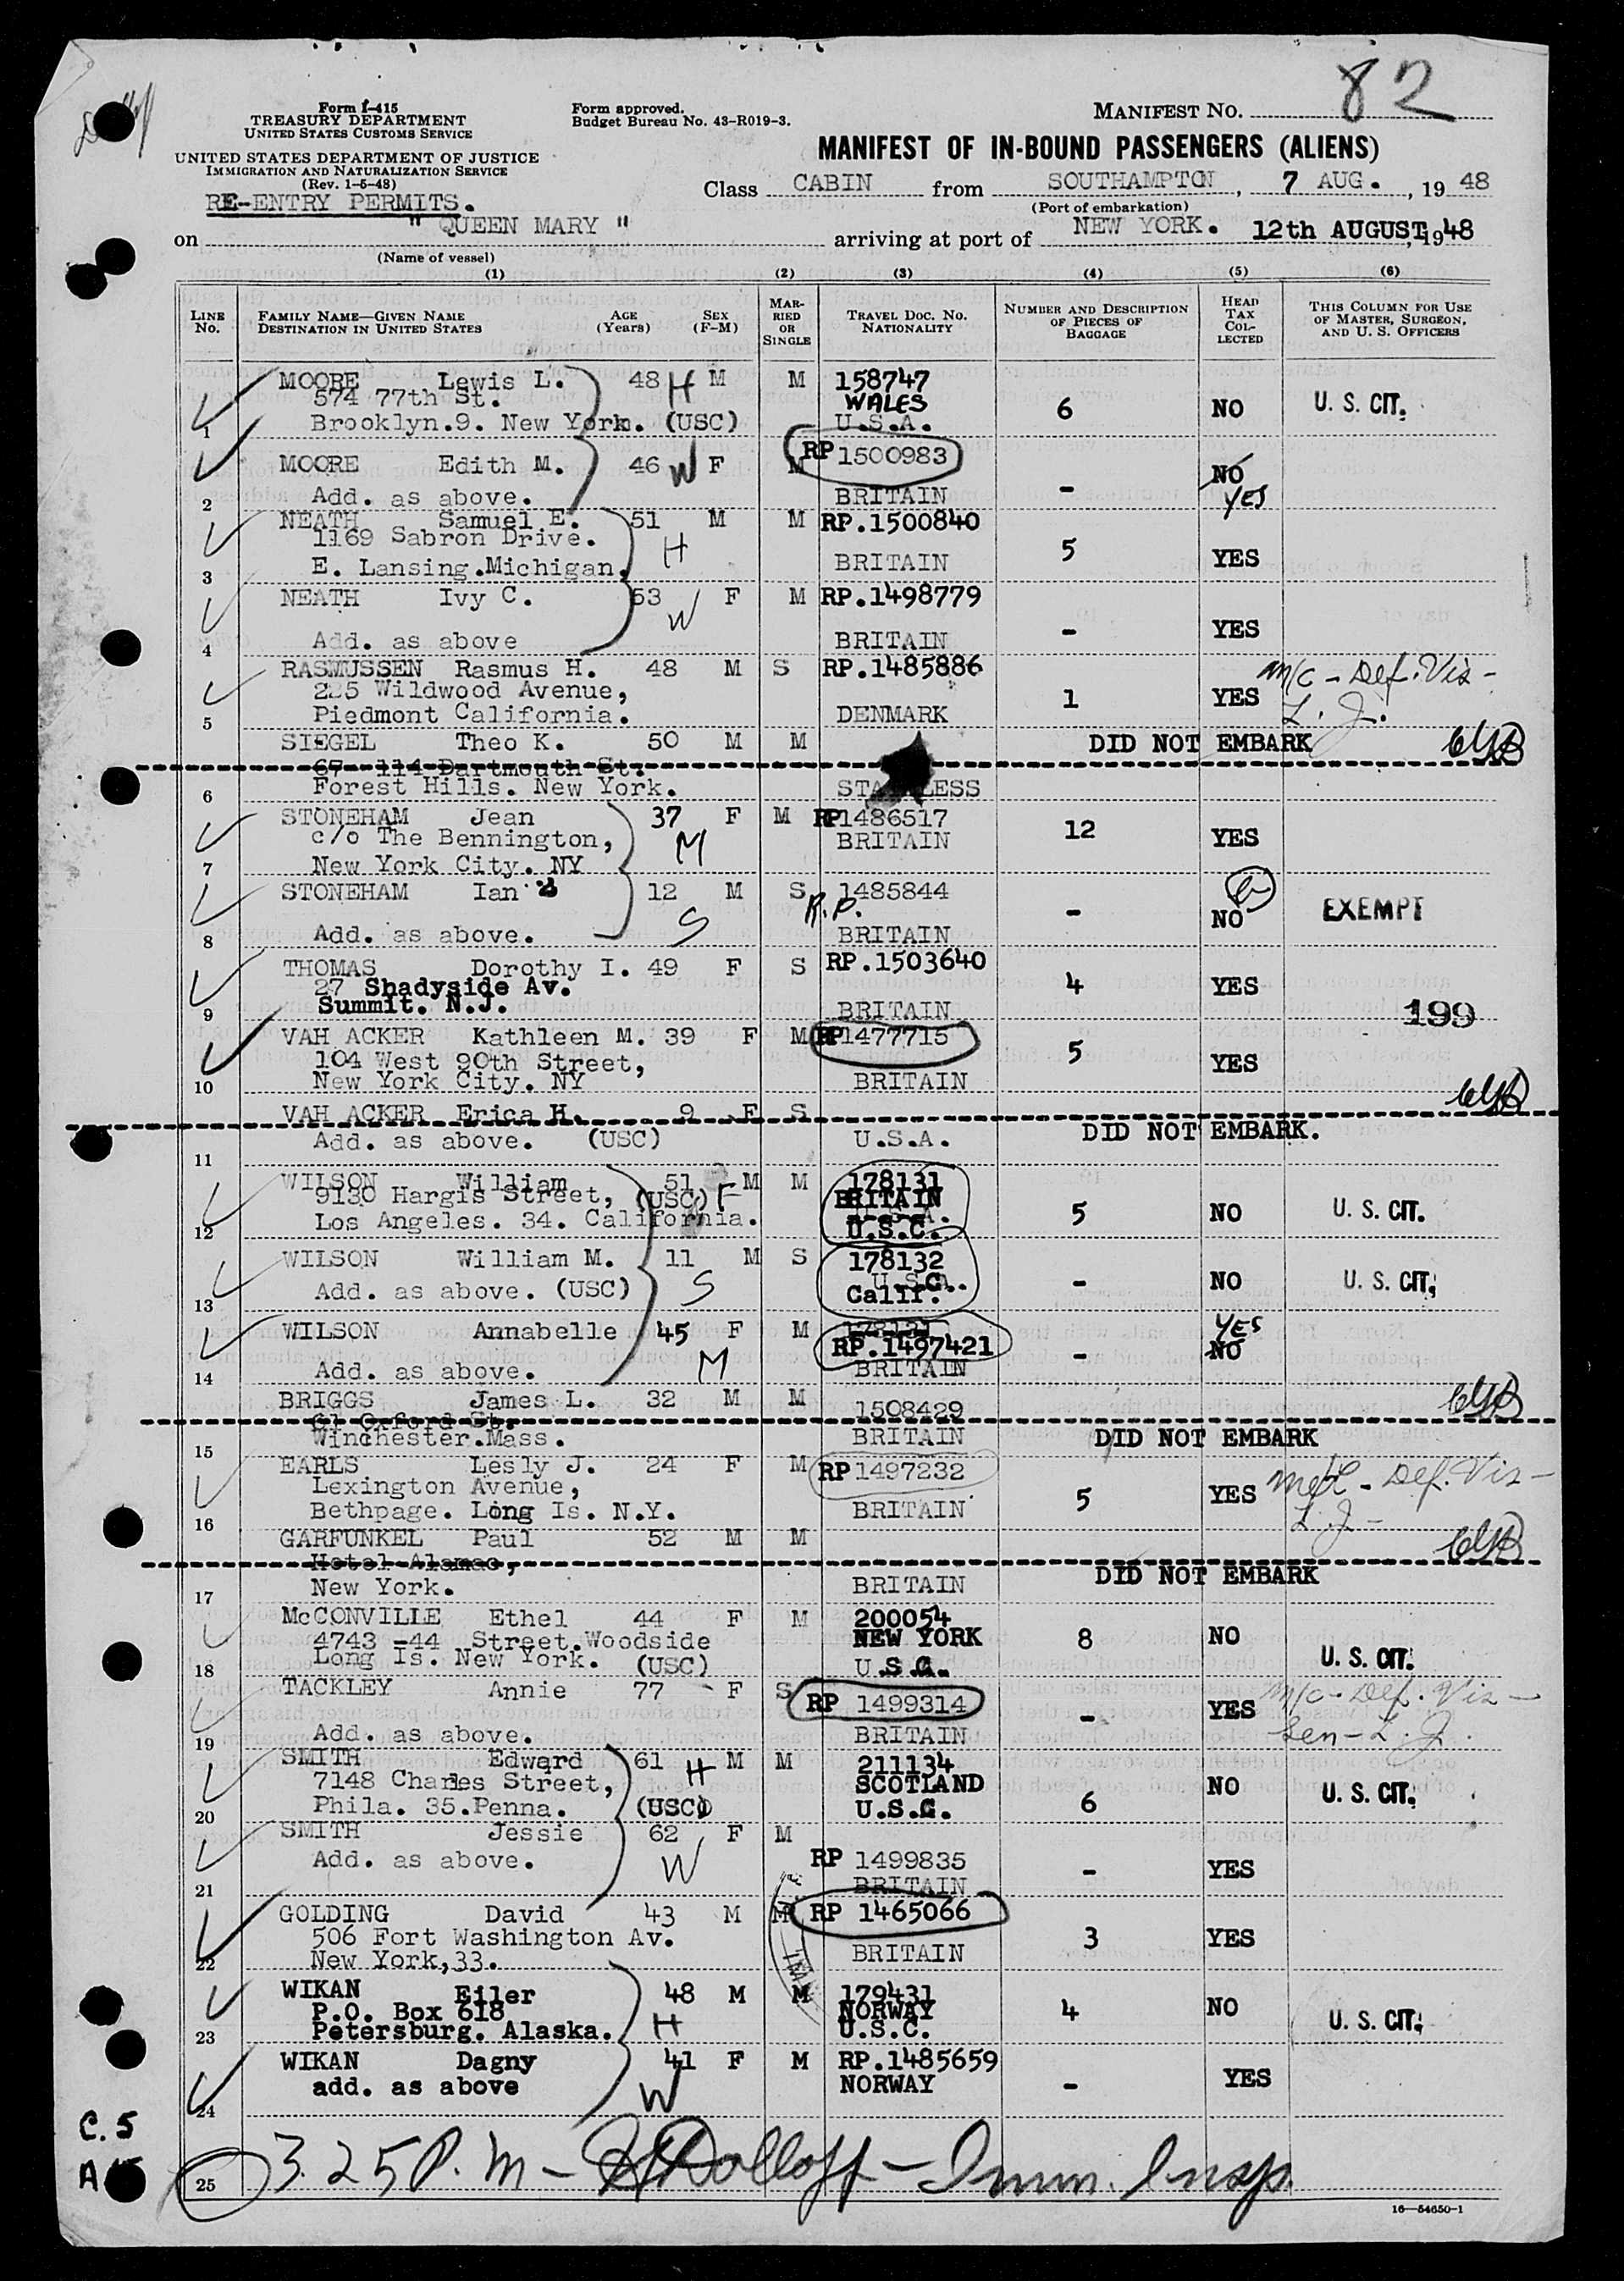 82
Form I-415
TREASURY DEPARTMENT
UNITED STATES CUSTOMS SERVICE
Form approved.
Budget Bureau No. 43-R019-3.
MANIFEST NO.
UNITED STATES DEPARTMENT OF JUSTICE
IMMIGRATION AND NATURALIZATION SERVICE
(Rev. 1-5-48)
MANIFEST OF IN-BOUND PASSENGERS (ALIENS)
RE-ENTRY PERMITS.
Class CABIN from SOUTHAMPTON, 7 AUG., 19 48
(Port of embarkation)
on " QUEEN MARY " arriving at port of NEW YORK. 12th AUGUST, 1948
(Name of vessel)
(1) (2) (3) (4) (5) (6)
LINE No.
FAMILY NAME—GIVEN NAME
DESTINATION IN UNITED STATES
AGE (Years)
SEX (F-M)
MARRIED OR SINGLE
TRAVEL DOC. NO. NATIONALITY
NUMBER AND DESCRIPTION OF PIECES OF BAGGAGE
HEAD TAX COLLECTED
THIS COLUMN FOR USE OF MASTER, SURGEON, AND U. S. OFFICERS
MOORE Lewis L. 48 H M M 158747
574 77th St. WALES 6 NO U. S. CIT.
1 Brooklyn.9. New York. (USC) U.S.A.
MOORE Edith M. 46 W F M RP 1500983
2 Add. as above. BRITAIN - NO YES
NEATH Samuel E. 51 M M RP.1500840
1169 Sabron Drive. H 5 YES
3 E. Lansing.Michigan. BRITAIN
NEATH Ivy C. 53 F M RP.1498779
W - YES
4 Add. as above BRITAIN
RASMUSSEN Rasmus H. 48 M S RP.1485886 m/c - Def. Vis -
225 Wildwood Avenue, 1 YES L. J.
5 Piedmont California. DENMARK
SIEGEL Theo K. 50 M M DID NOT EMBARK
67- 114 Dartmouth St.
6 Forest Hills. New York.
STONEHAM Jean 37 F M RP 1486517 12 YES
c/o The Bennington, M BRITAIN
7 New York City. NY
STONEHAM Ian 12 M S R.P. 1485844
S - NO EXEMPT
8 Add. as above. BRITAIN
THOMAS Dorothy I. 49 F S RP.1503640
27 Shadyside Av. 4 YES
9 Summit. N.J. BRITAIN 199
VAH ACKER Kathleen M. 39 F M RP 1477715
104 West 90th Street, 5 YES
10 New York City. NY BRITAIN
VAH ACKER Erica H. 9 F S
11 Add. as above. (USC) U.S.A. DID NOT EMBARK.
WILSON William 51 M M 178131
9130 Hargis Street, (USC) F BRITAIN 5 NO U. S. CIT.
12 Los Angeles. 34. California. U.S.C.
WILSON William M. 11 M S 178132
13 Add. as above. (USC) S Calif. - NO U. S. CIT.
WILSON Annabelle 45 F M 178131 YES
RP.1497421 - NO
14 Add. as above. M BRITAIN
BRIGGS James L. 32 M M 1508429
61 Oxford St.
15 Winchester.Mass. BRITAIN DID NOT EMBARK
EARLS Lesly J. 24 F M RP 1497232
Lexington Avenue, 5 YES Def. Vis -
16 Bethpage. Long Is. N.Y. BRITAIN L. J -
GARFUNKEL Paul 52 M M
Hotel Alamac, DID NOT EMBARK
17 New York. BRITAIN
McCONVILLE Ethel 44 F M 200054
4743 -44 Street.Woodside NEW YORK 8 NO
18 Long Is. New York. (USC) U.S.C. U. S. CIT.
TACKLEY Annie 77 F S RP 1499314 YES m/c - Def. Vis -
19 Add. as above. BRITAIN - Sen - L. J.
SMITH Edward 61 H M M 211134
7148 Charles Street, SCOTLAND NO U. S. CIT.
20 Phila. 35.Penna. (USC) U.S.C. 6
SMITH Jessie 62 F M
Add. as above. W RP 1499835 - YES
21 BRITAIN
GOLDING David 43 M M RP 1465066
506 Fort Washington Av. 3 YES
22 New York,33. BRITAIN
WIKAN Eiler 48 M M 179431
P.O. Box 618 H NORWAY 4 NO U. S. CIT.
23 Petersburg. Alaska. U.S.C.
WIKAN Dagny 41 F M RP.1485659
add. as above W NORWAY - YES
24
C. 5
25 3.25 P. M - Dolloff - Imm. Insp.
16—54650-1